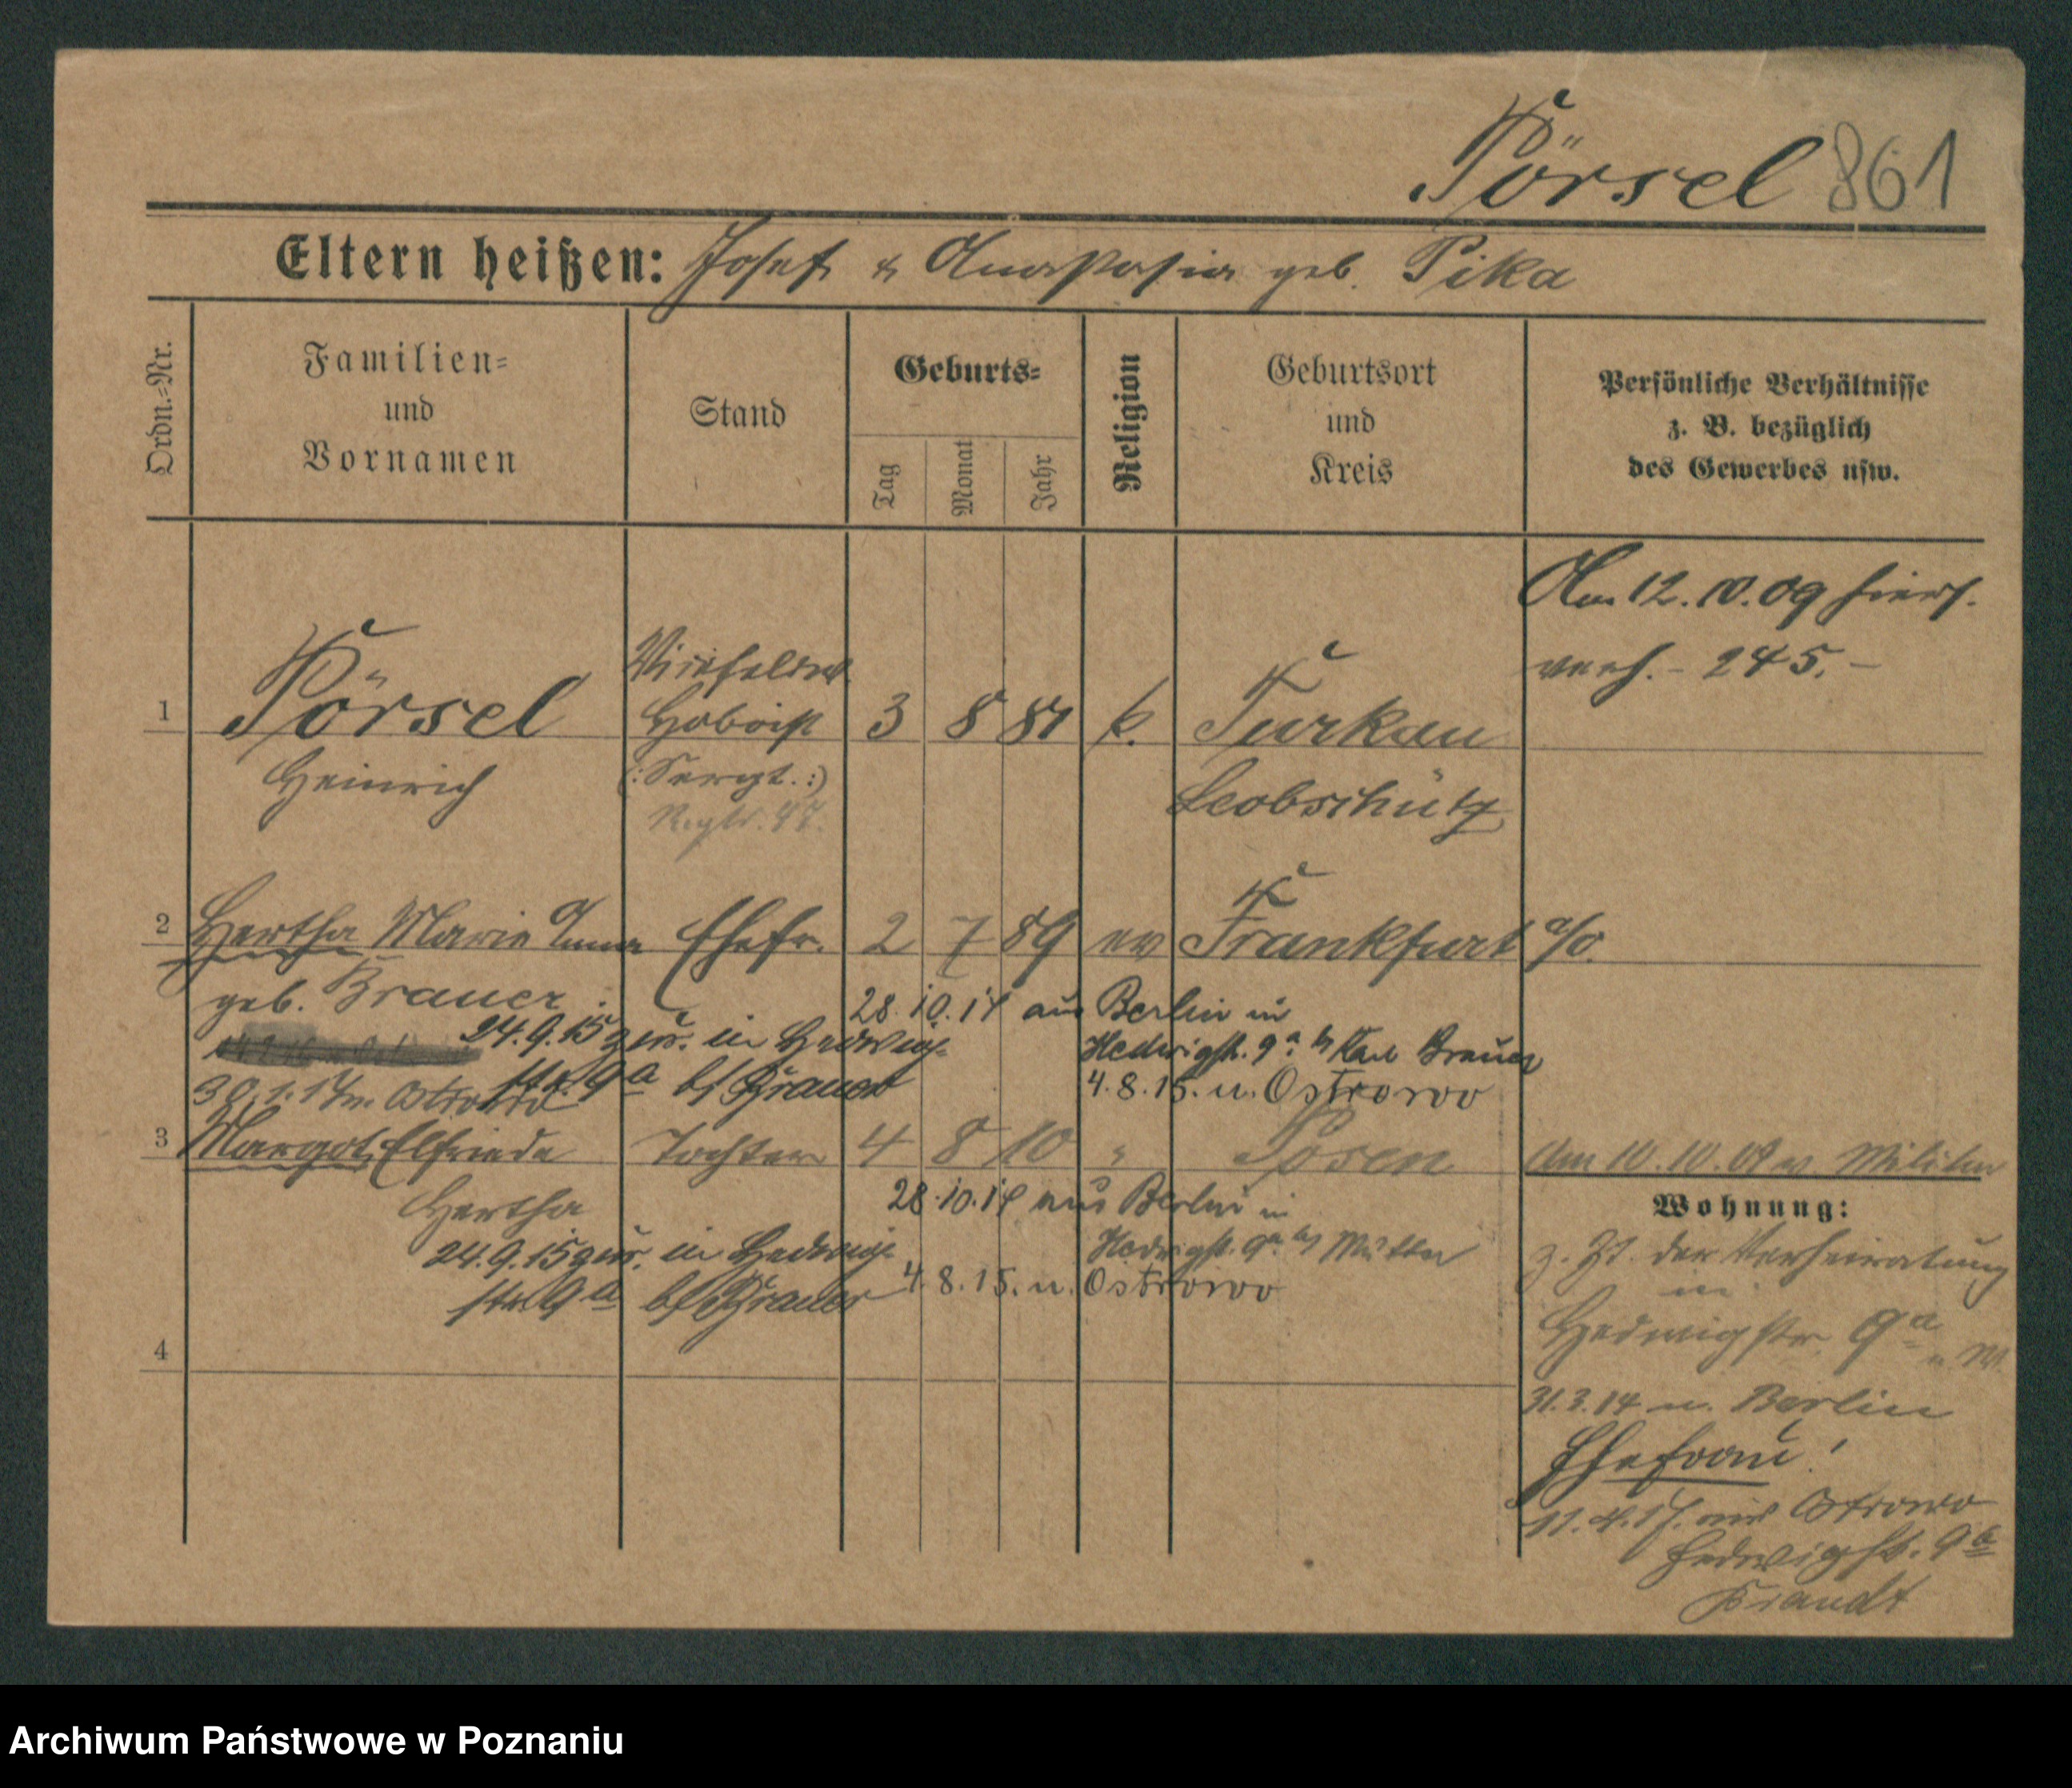 Pörsel 861
Eltern heißen: Josef & Anastasia geb. Pika
Ordn.=Nr.
Familien=
und
Vornamen
Stand
Geburts=
Tag
Monat
Jahr
Religion
Geburtsort
und
Kreis
Persönliche Verhältnisse
z. B. bezüglich
des Gewerbes usw.
Am 12.10.09 hiers.
verh. - 245. -
Vizefeldw.
1 Pörsel Hoboist 3 8 81 k. Turkau
Heinrich (:Sergt.:) Leobschütz
Regts. 47.
2 Hertha Marie Anna Ehefr. 2 7 89 ev Frankfurt a/O.
geb. Brauer
28.10.14 aus Berlin in
24.9.15 zur. in Hedwig-
Hedwigstr. 9a b/ Karl Brauer
str. 9a b/ Brauer
4.8.15. n. Ostrowo
30.1.17 n. Ostrowo
3 Margot Elfriede Tochter 4 8 10 " Posen
Hertha
28.10.14 aus Berlin in
24.9.15 zur. in Hedwig-
Hedwigstr. 9a b/ Mutter
str. 9a b/ Brauer
4.8.15. n. Ostrowo
4
Am 10.10.09 v. Militär
Wohnung:
z. Zt. der Verheiratung
in
Hedwigstr. 9a
31.3.14 n. Berlin
Ehefrau!
11.4.17. aus Ostrowo
Hedwigstr. 9a
Brandt
Archiwum Państwowe w Poznaniu